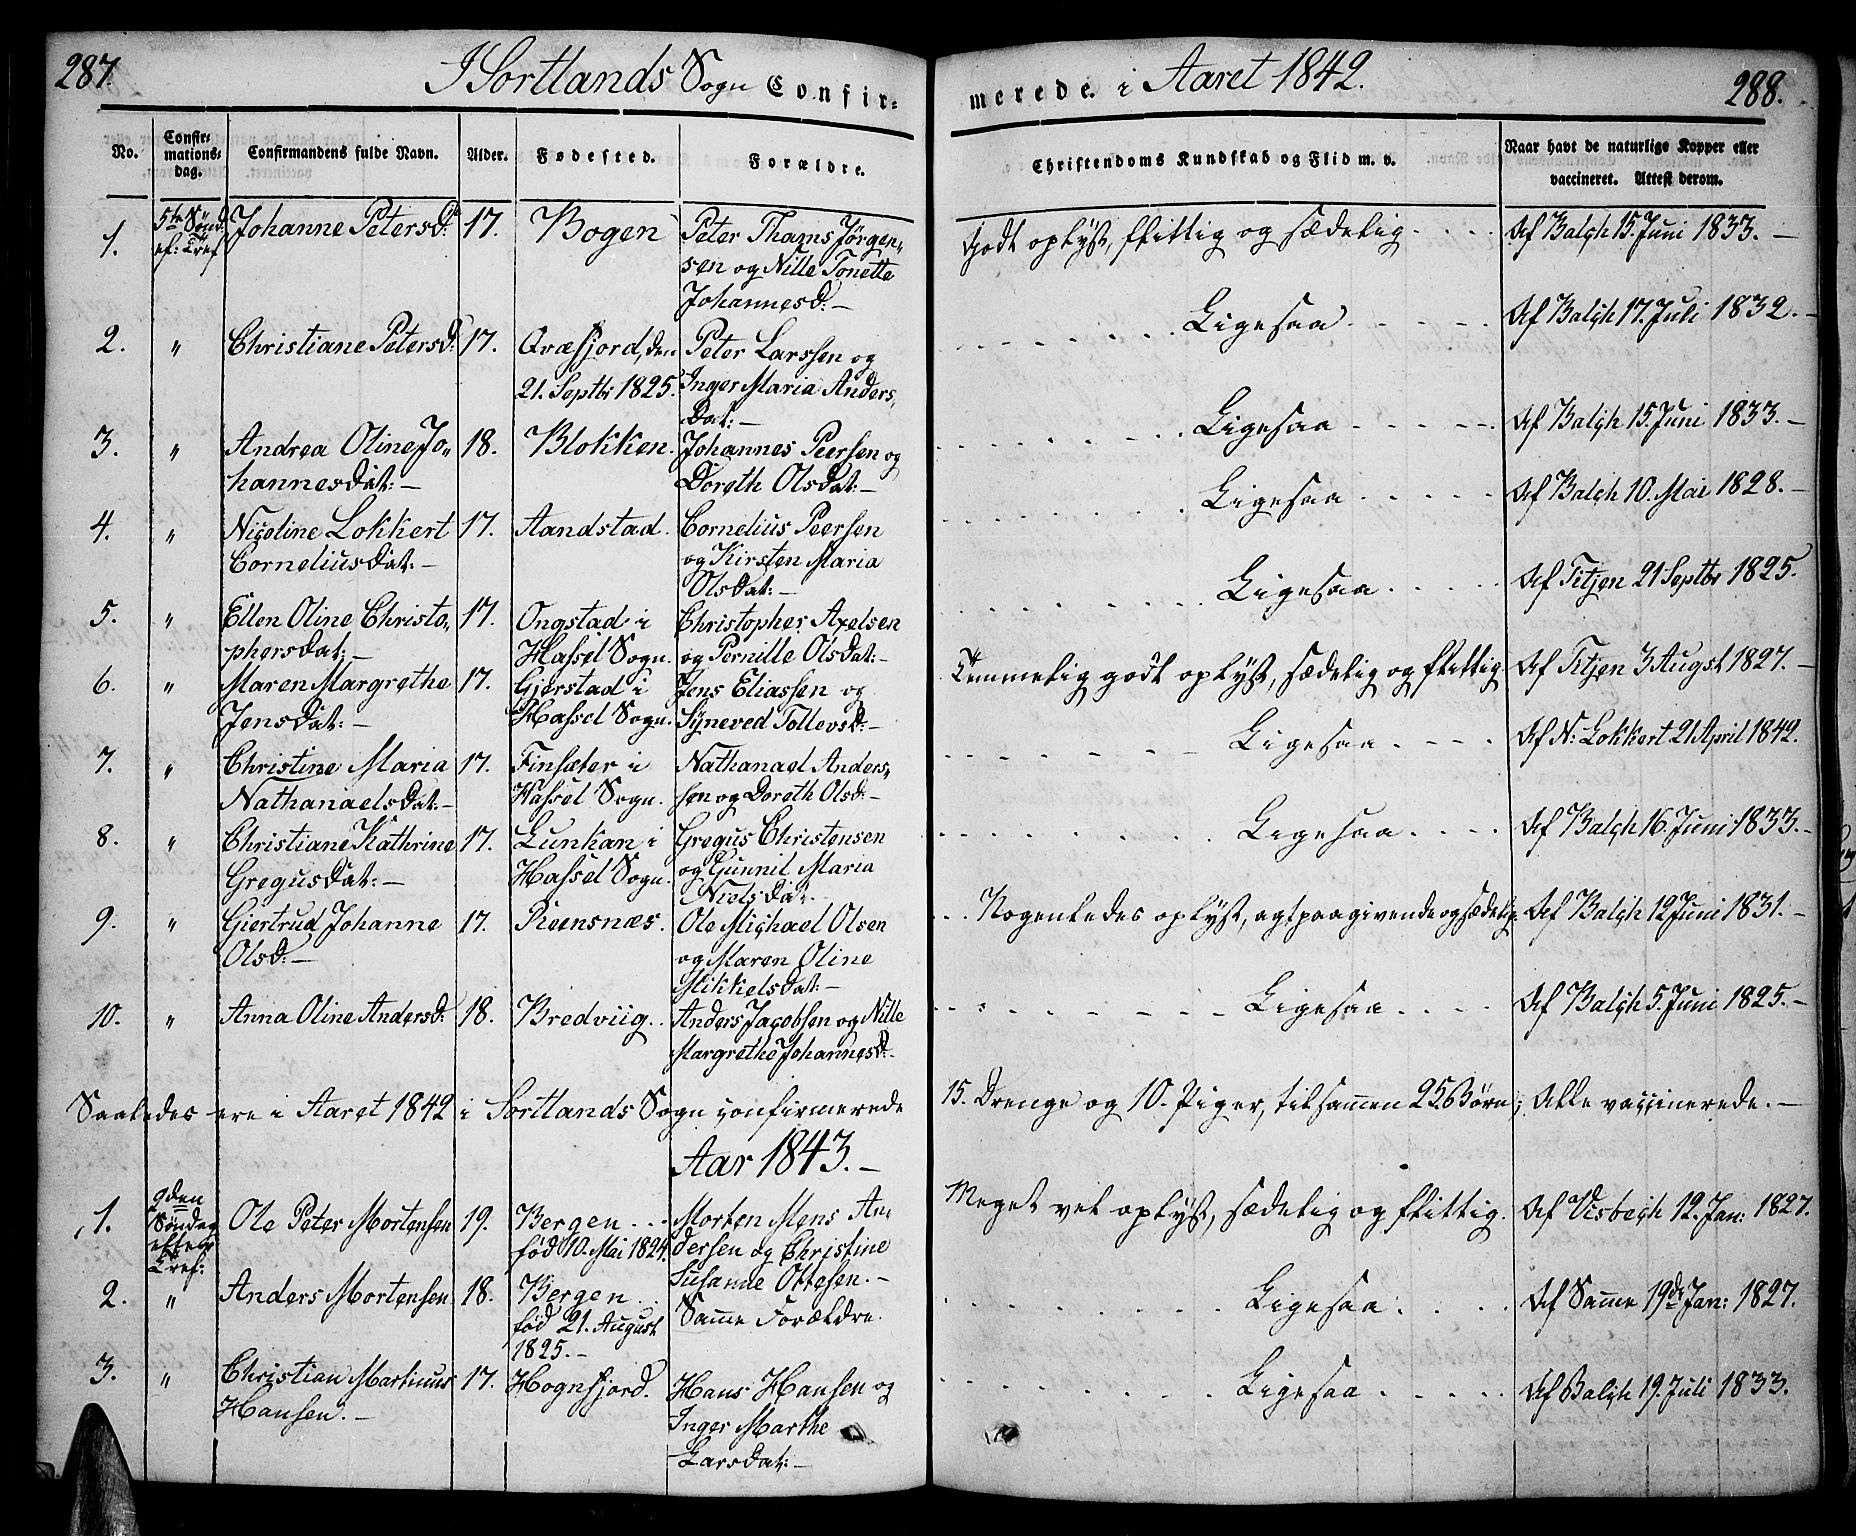 287.
I Sortlands Sogn Confir-
No.
Confir-
mations-
dag.
Confirmandens fulde Navn.
Alder.
Fødested.
Forældre.
1. 5te Sønd. Johanne Petersd: 17. Bogen Peter Thams Jørgen-
ef: Tref sen og Nille Tonette
Johannesd:—
2. " Christiane Petersd: 17. Qvæfjord, den Peter Larssen og
21. Septbr 1825. Inger Maria Anders,
Dat:—
3. " Andrea Oline Jo- 18. Blokken. Johannes Peersen og
hannesdat:— Doreth Olsdat:—
4. " Nicoline Lokkert 17. Aandstad. Cornelius Peersen
Corneliusdat:— og Kirsten Maria
Olsdat:—
5. " Ellen Oline Christo- 17. Ongstad i Christopher Axelsen
phersdat:— Hassel Sogn. og Pernille Olsdat:—
6. " Maren Margrethe 17. Gjerstad i Jens Eliassen og
Jensdat:— Hassel Sogn. Syneved Tollevsd:—
7. " Christine Maria 17. Finsæter i Nathanael Anders-
Nathanaelsdat:— Hassel Sogn. sen og Doreth Olsd:—
8. " Christiane Kathrine 17. Lunkan i Gregus Christensen
Gregusdat:— Hassel Sogn. og Gunnil Maria
Nielsdat.
9. " Giertrud Johanne 17. Reensnæs. Ole Michael Olsen
Olsd:— og Maren Oline
Mikkelsdat:—
10. " Anna Oline Andersd: 18. Bredviig.. Anders Jacobsen og Nille
Margrethe Johannesd:
Saaledes ere i Aaret 1842 i Sortlands Sogn confirmerede
Aar 1843.—
1. 9den Ole Peter Mortensen 19. Bergen ... Morten Mens An-
Søndag født 10. Mai 1824. dersen og Christine
efter Susanne Ottesen.—
Tref:
2. " Anders Mortensen 18. Bergen .. Samme Forældre.
født 21. August
1825.—
3. " Christian Martinus 17. Hognfjord. Hans Hansen og
Hansen.— Inger Marthe
Larsdat:—
merede i Aaret 1842.
288.
Christendoms Kundskab og Flid m. v.
Naar havt de naturlige Kopper eller
vaccineret. Attest derom.
Godt oplyst, flittig og sædelig. Af Balch 15. Juni 1833.—
Ligesaa Af Balch 17. Juli 1832.—
Ligesaa Af Balch 15. Juni 1833.—
Ligesaa Af Balch 10. Mai 1828.—
Ligesaa Af Titjen 21 Septbr 1825.
Temmelig godt oplyst, sædelig og flittig Af Titjen 3 Augst 1827.—
Ligesaa Af N: Lokkert 21 April 1842.
Ligesaa Af Balch 16. Juni 1833.—
Nogenledes oplyst, agtpaagivende og sædelig. Af Balch 12 Juni 1831.—
Ligesaa Af Balch 5. Juni 1825.—
15. Drenge og 10. Piger, tilsammen 25 Børn; Alle vaccinerede.—
Meget vel oplyst, sædelig og flittig. Af Visbech 12. Jan: 1827.
Ligesaa Af Samme 19de Jan: 1827.
Ligesaa Af Balch 19. Juli 1833.